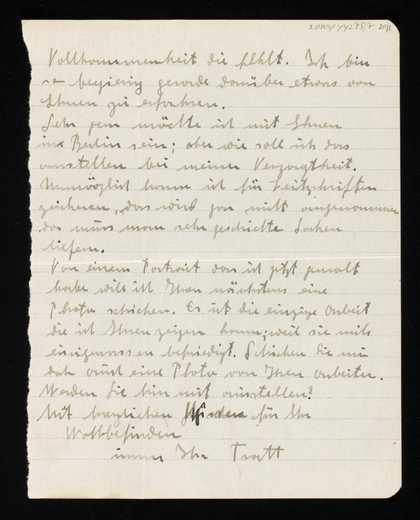 Vollkommenheit die fehlt. Ich bin
so begierig gerorde darüber etwas von
Ihnen zu erfahren.
Sehr gern möchte ich mit Ihnen
in Berlin sein; aber wie soll ich das
anstellen bei meiner Verzagtheit.
Unmöglich kann ich für Zeitschriften
zeichnen, das wird gar nicht angenommen
da muss man sehr geschickte Sachen
liefern.
Von einem Portrait das ich jetzt gemalt
habe will ich Ihnen nächstens eine
Photo schicken. Es ist die einzige Arbeit
die ich Ihnen zeigen kann, weil sie mich
einigermassen befriedigt. Schicken Sie mir
doch auch eine Photo von Ihren Arbeiten.
Werden Sie hier mit ausstellen?
Mit herzlichen für Ihr
Wohlbefinden
immer Ihr